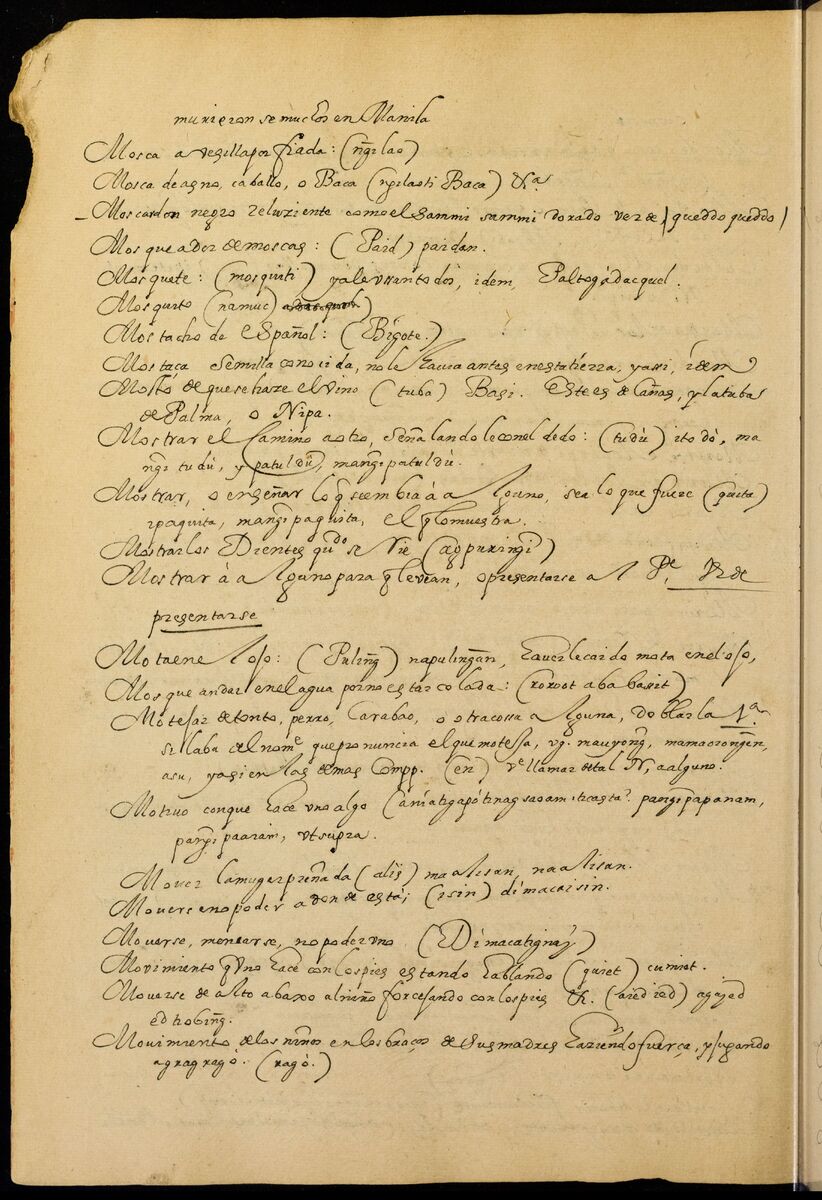 murieron se muchos en Manila
Mosca avegilla porfiada: (ngĩlao)
Mosca de asno, caballo, o Baca (ngilasti Baca) &a
Moscardon negro reluziente como el sammi sammi dorado verde (queddo queddo)
Mosqueador de moscas: (Paid) paidan.
Mosquete: (mosquiti) yale vsan todos, idem, Paltog dacquel.
Mosquito (namuc)
Mostacho de español: (Bigote.)
Mostaça semilla conocida, no le havia antes en esta tierra, y assi, idem
Mosto de que se haze el vino (tuba) Basi. este es de cañas, y la tuba
de Palma, o Nipa.
Mostrar el camino a otro, señalandole con el dedo: (tudú) itodó, ma
ngĩ tudú, y patuldú, mangĩpatuldú.
Mostrar, o enseñar lo q̃ se embia á alguno, sea lo que fuere (quita)
ipaquita, mangĩpaquita, el q̃ lo muestra.
Mostrar los Dientes qu.do se rie (agpuringĩ)
Mostrar á alguno para q̃ le vean, o presentarse al Pe. Vide
presentarse
Mota en el ojo: (Puling̃) napulingãn, haverle caido mota en el ojo,
Mosque andar en el agua por no estar colada: (roroot a babassit)
Motejar de tonto, perro, Carabao, o otra cossa alguna, doblar la 1a
sillaba del nome que pronuncia el que motessa, vg. mauyong̃, mamaorongẽn,
asu, y asi en las demas Compp. (en) ve llamar de tal N, a alguno.
Motivo con que hace vno algo pangĩpapanam,
pangĩpaaram, vt supra.
Mover la muger preñada (alis) maalisan, naalisan.
Moverse no poder a donde está; (isin) dimacaisin.
Moverse, menearse, no poder vno (Dimacátignáy)
Movimiento q̃ vno hace con los pies estando hablando (quiet) cumiet.
Moverse de alto abaxo al niño forcejando con los pies &. (aied ied) agajed
ed
Movimiento de los niños en los braços de sus madres haziendo fuerça, y jugando
agragragó. (ragó.)